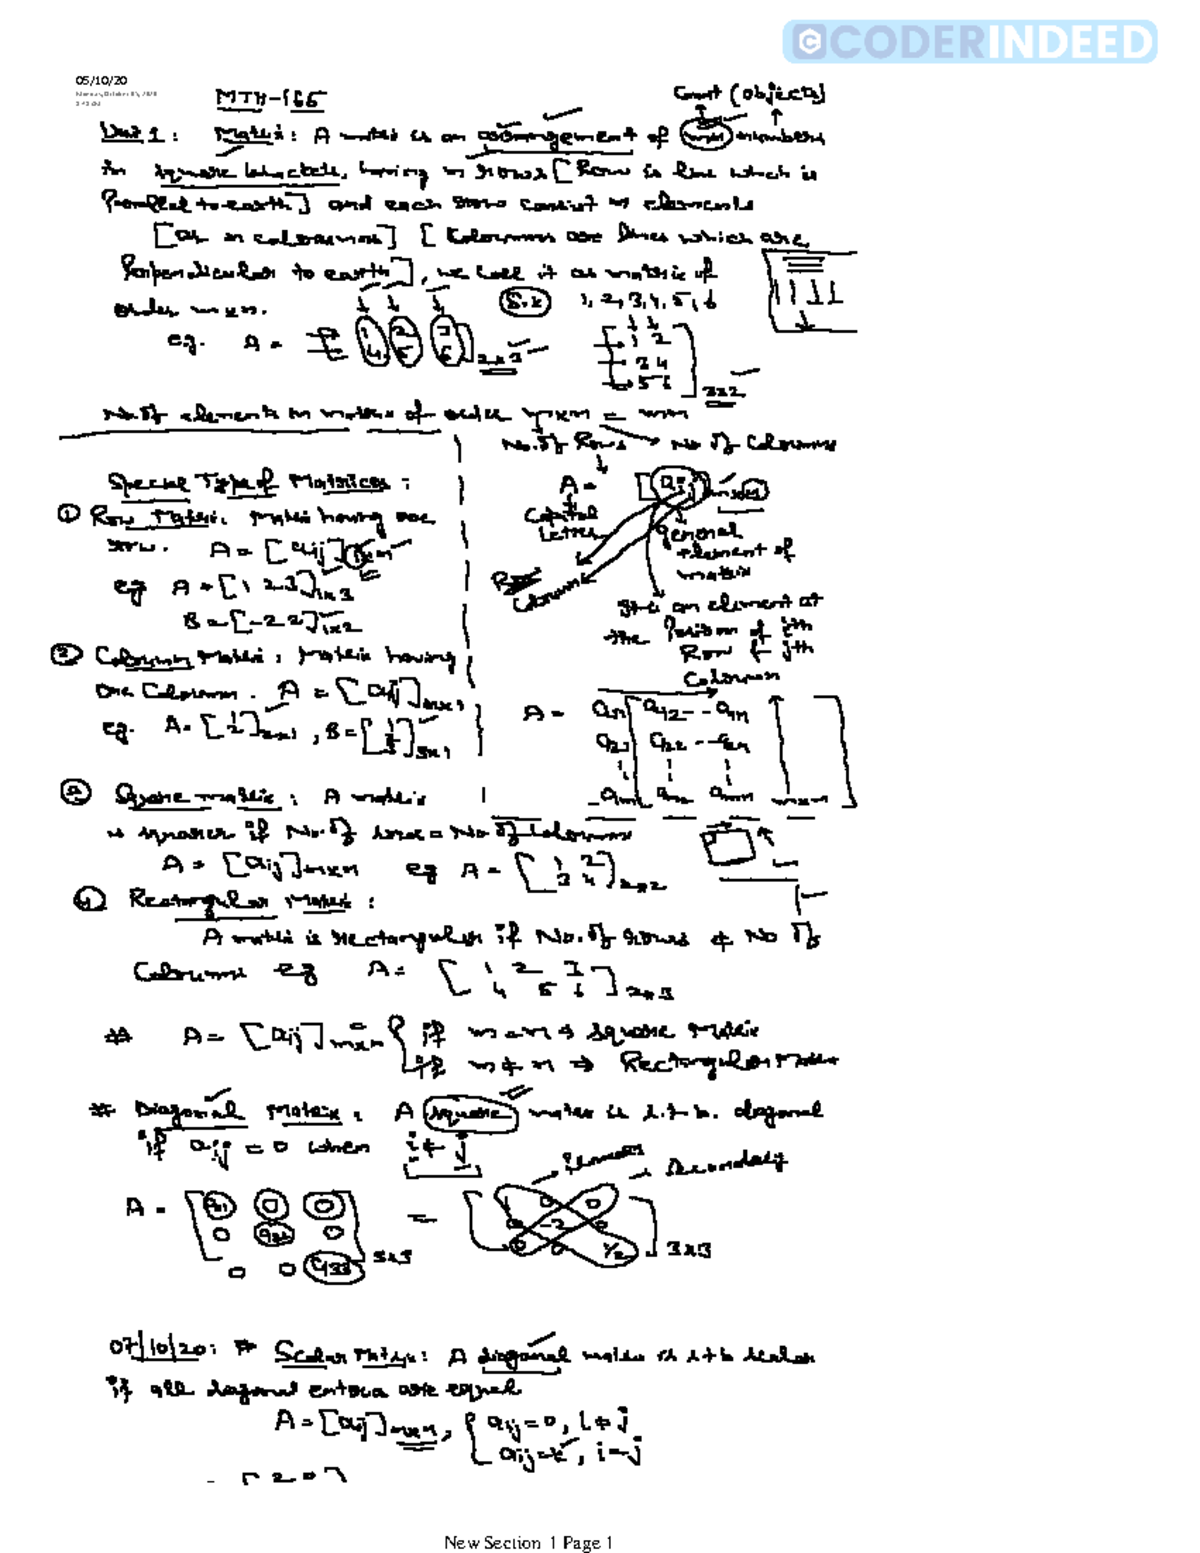 CODERINDEED
05/10/20
MTH-165
Count (objects)
Unit 1: Matrix: A matrix is an arrangement of mn numbers
in square brackets, having m rows [Row is line which is
Parallel to earth] and each row consist n elements
[or n coloumns] [Coloumns are lines which are
Perpendicular to earth], we call it as matrix of
order mxn.
1, 2, 3, 4, 5, 6
eg. A = [1 2 3
4 5 6] 2x3
[1 2
3 4
5 6] 3x2
No. of elements in matrix of order mxn = mn
No. of Rows
No of Coloumns
Special Type of Matrices :
① Row Matrix: Matrix having one
row. A = [aij] 1xn
eg A = [1 2 3] 1x3
B = [-2 2] 1x2
② Coloumn Matrix: Matrix having
one Coloumn. A = [aij] mx1
eg. A = [1
2] 2x1, B = 3x1
A = [aij] mxn
Capital
Letter
general
element of
matrix
Coloumn
It is an element at
the Position of ith
Row & jth
Coloumn
A = a11 a12 -- a1n
a21 a22 -- a2n
am1 am2 amn mxn
③ Square matrix: A matrix
is square if No. of rows = No of Coloumns
A = [aij] mxn eg A = [1 2
3 4] 2x2
④ Rectangular Matrix :
A matrix is rectangular if No. of rows ≠ No of
Coloumns eg A = [1 2 3
4 5 6] 2x3
# A = [aij] mxn { if m = n → Square Matrix
if m ≠ n ⇒ Rectangular Matrix
# Diagonal Matrix: A square matrix is s.t.b. diagonal
if aij = 0 when i ≠ j
Secondary
A = [a11 0 0
0 a22 0
0 0 a33] 3x3 = [1 0 0
0 -2 0
0 0 1/2] 3x3
07/10/20: # Scalar Matrix: A diagonal matrix is s.t.b scalar
if all diagonal entries are equal
A = [aij] mxn, { aij = 0, i ≠ j
aij = k, i = j
[2 0]
New Section 1 Page 1